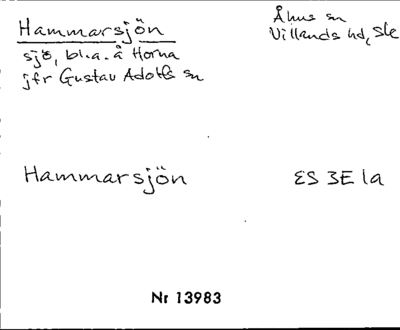 Hammarsjön
sjö, bl.a. å Horna
jfr Gustav Adolfs sn
Åhus sn
Villands hd, Sk
Hammarsjön
ES 3E 1a
Nr 13983